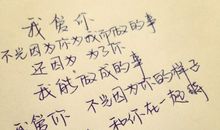 我爱你
不光因为你为我而做的事
还因为 为了你
我能做成的事
我爱你 不光因为你的样子
和你在一起时